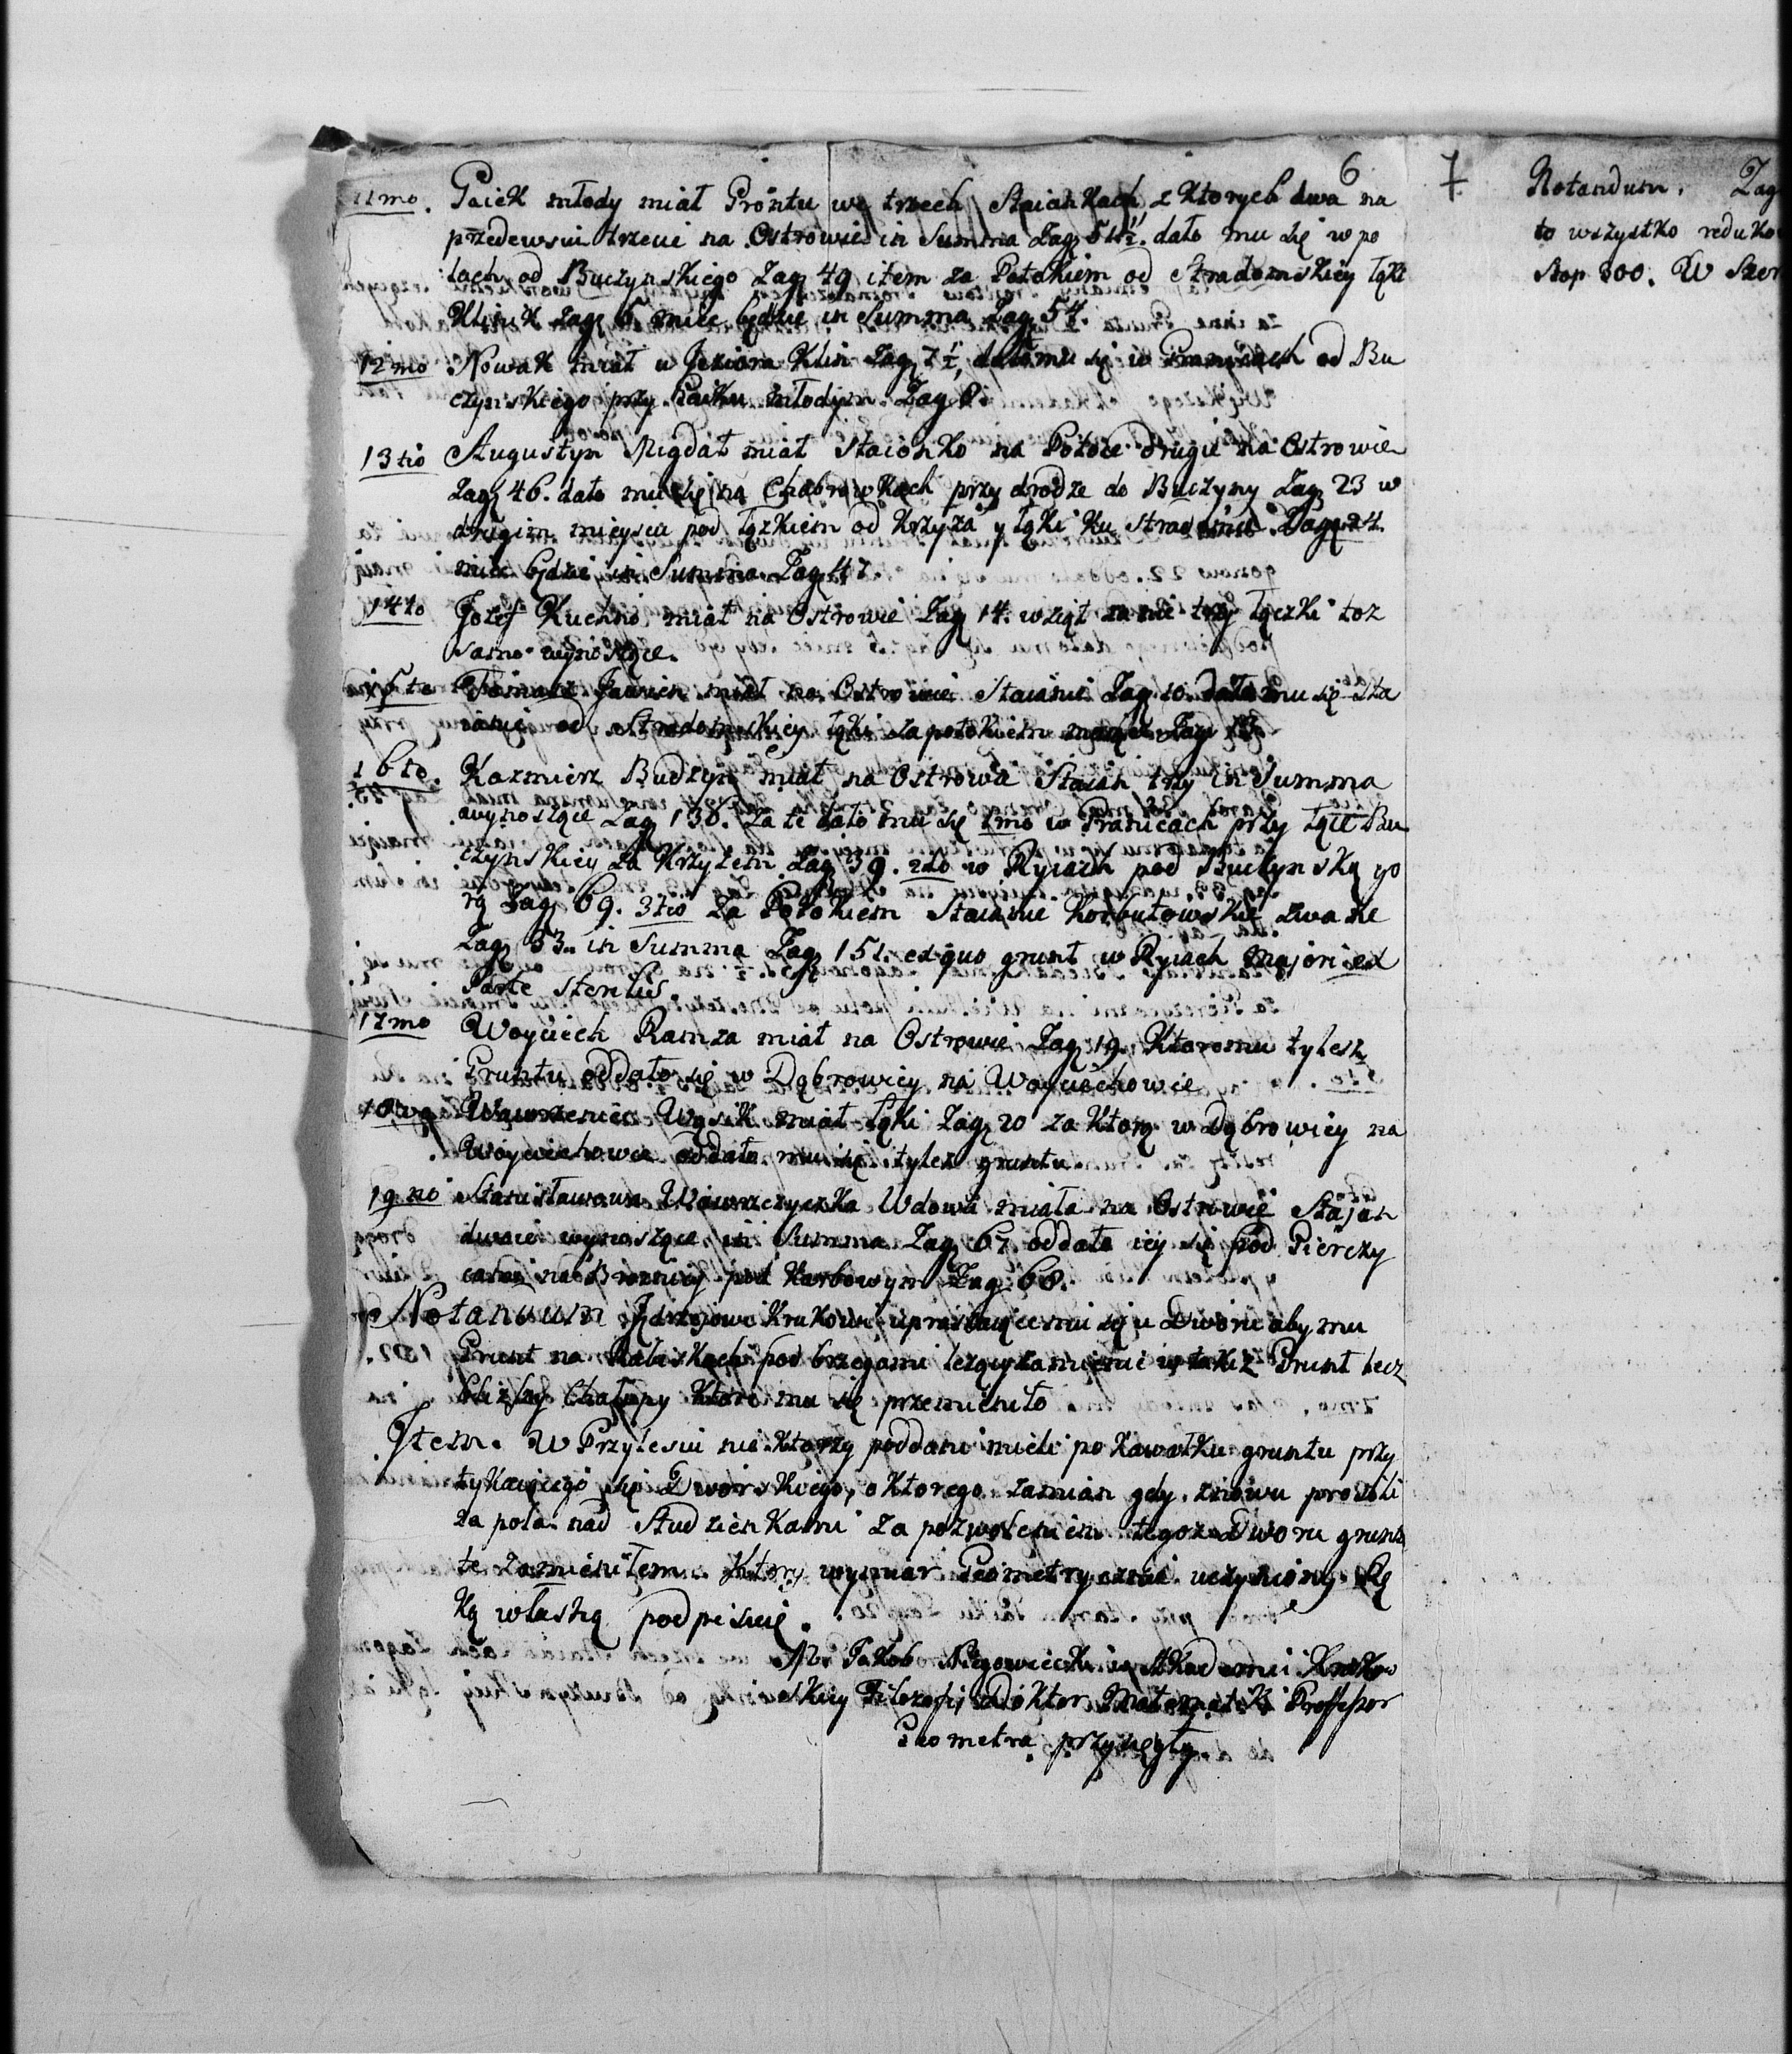 6
11mo. Gaick młody miał Gróntu we trzech Staiankach z ktorych dwa na
przedewsiu trzecie na Ostrowie in Summa Zag 51½. dało mu się w po
lach od Buczynskiego Zag 49 item za Potokiem od Stradomskiey łąki
Klinik Zag 5 miec będzie in Summa Zag 54.
12mo Nowak miał u Jeziora Klin Zag 7½, dało mu się w Pranicach od Bu
czynskiego przy Gaiku młodym Zag 8
13tio Augustyn Migdał miał Staionko na Potoce drugie na Ostrowie
Zag 46. dało mu się na Chabrowkach przy drodze do Buczyny Zag 23 w
drugim mieyscu pod łązkiem od Krzyża y łąki ku Stradomce Zag 24.
miec będzie in Summa Zag 47
14to Jozef Kuchno miał na Ostrowie Zag 14. wziął za nie trzy łączki toz
samo wynoszące.
15to Tomasz Jawien miał na Ostrowie Staianie Zag 10. dało mu się Sta
ianie od Stradomskiey łąki za potokiem maiące Zag 13
16to. Kazmierz Budzyn miał na Ostrowie Staian trzy in Summa
wynoszące Zag 138. Za te dało mu się 1mo w Pranicach przy łące Bu
czynskiey za Krzyżem Zag 39. 2do w Ryiach pod Buczynską go
rą Zag 69. 3tio Za Potokiem Staianie Korbutowskie zwane
Zag 33. in Summa Zag 151. ex quo grunt w Ryiach majori ex
Parte sterilis.
17mo Woyciech Ramza miał na Ostrowie Zag 19. Ktoremu tylesz
Gruntu oddało się w Dąbrowicy na Woyciechowie
Wawrzeniec Wąsik miał łąki Zag 20 za ktorą w Dąbrowicy na
Woyciechowie oddało mu się tylez gruntu
19no Stanisławowa Wawrzyczka Wdowa miała na Ostrowie Stajan
dwoie wynoszące in Summa Zag 67 oddało iey się pod Pierczy
cami na Brzeznicy pod Karbowym Zag 68.
Notandum Jędrzejowi Krukowi upraszaiącemu się u Dworu aby mu
Grunt na Rabiskach pod brzegami lezący zamienic w takiż Grunt lecz
blizszy Chałupy ktore mu się przemieniło
Item. W Przylesiu nie ktorzy poddani mieli po kawałku gruntu przy
tykaiącego się Dworskiego, o ktorego zamian gdy znowu prosili
za pola nad Studzienkami za pozwoleniem tegoz Dworu grunta
te zamieniłem. Ktory wymiar Geometrycznie uczyniony Rę
ką własną podpisuię.
M. Jakob Niegowiecki w Akademii Krakow
skiey Filozofii Doktor Matematyki Professor
Geometra przysięgły.
7 Notandum. Zag
to wszystko reduko
Stop 300. W Szer